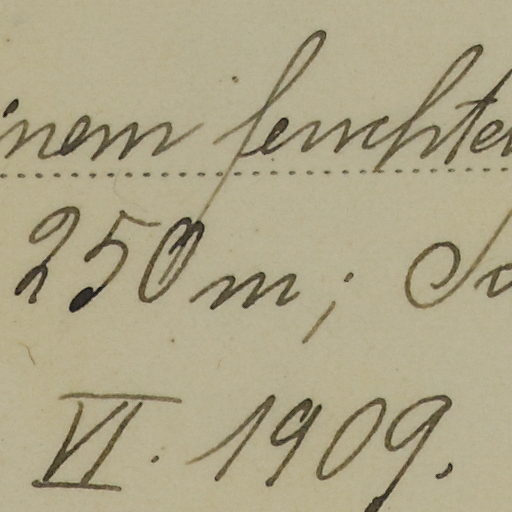 inem feuchten
250 m;
VI. 1909.